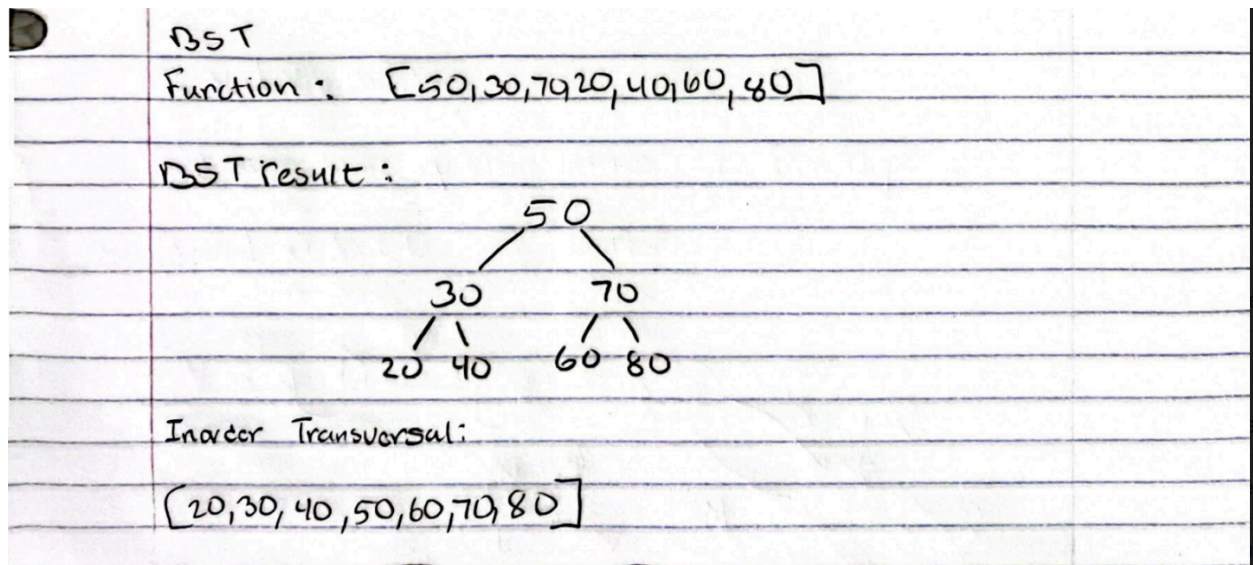 BST
Function: [50,30,70,20,40,60,80]
BST result:
50
30 70
20 40 60 80
Inorder Transversal:
[20,30,40,50,60,70,80]